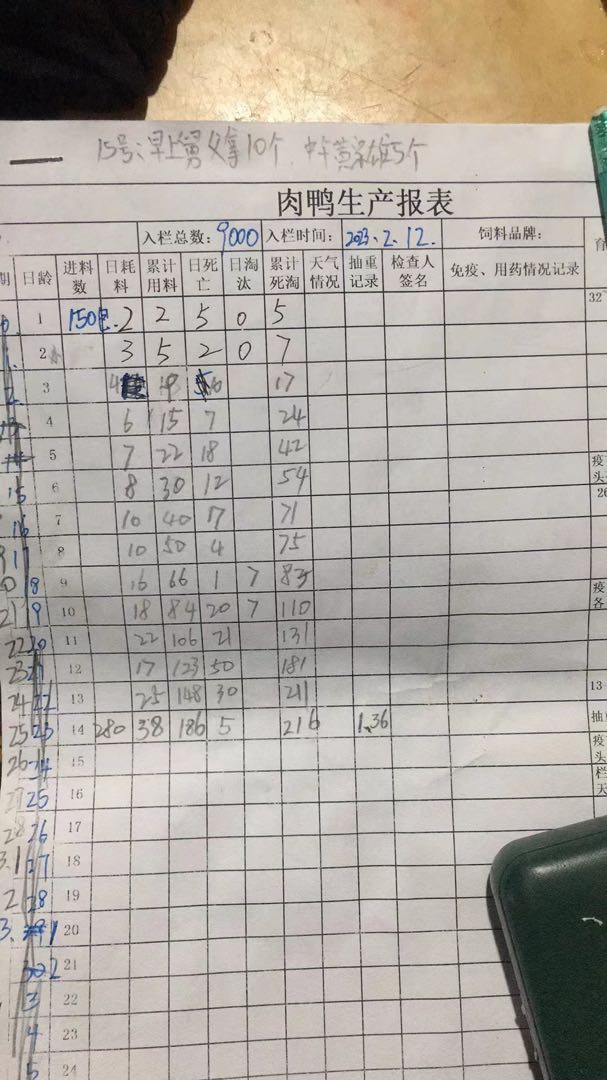 15号:早上舅父拿10个
5个
肉鸭生产报表
入栏总数: 9000 入栏时间: 2023.2.12. 饲料品牌:
期 日龄 进料数 日耗料 累计用料 日死亡 日淘汰 累计死淘 天气情况 抽重记录 检查人签名 免疫、用药情况记录 育
1 150包 2 2 5 0 5 32
2 3 5 2 0 7
3 17
4 6 15 7 24
5 7 22 18 42 疫
15 6 8 30 12 54 头
7 10 40 17 71 26
17 8 10 50 4 75
18 9 16 66 1 7 83 疫
21 19 10 18 84 20 7 110 各
22 20 11 22 106 21 131
23 21 12 17 123 50 181
24 22 13 25 148 30 211 13
25 23 14 280 38 186 5 216 1.36 抽
26 24 15 疫
25 16 头 栏
28 26 17 天
3.1 27 18
2 28 19
3. 1 20
2 21
3 22
4 23
5 24